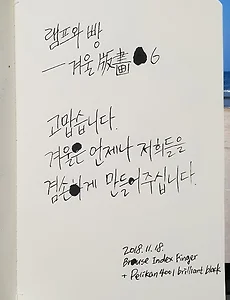 램프와 빵
— 겨울 版畫 6
고맙습니다.
겨울은 언제나 저희들을
겸손하게 만들어주십니다.
2018. 11. 18.
Brause Index Finger
+ Pelikan 4001 brilliant black